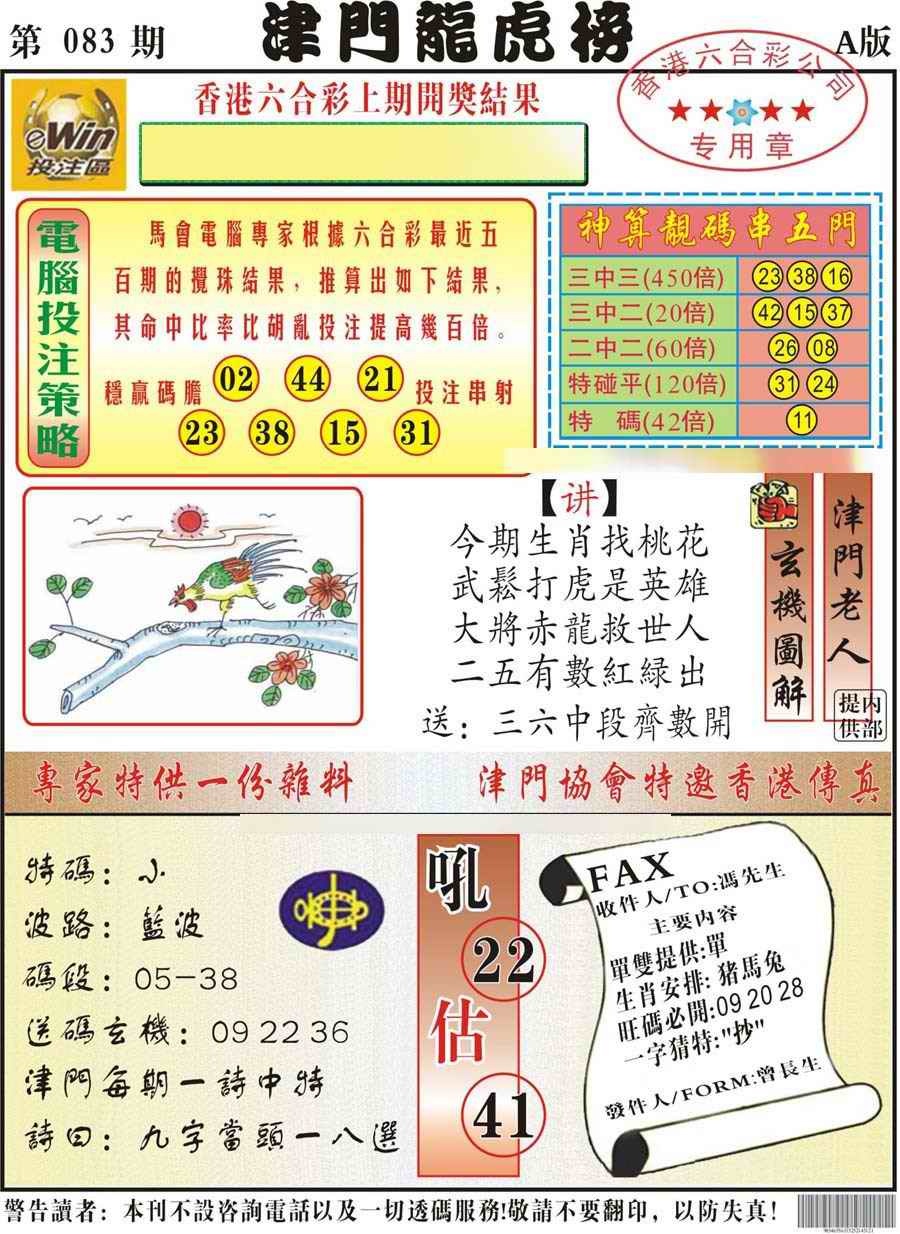 第 083 期
津門龍虎榜
A版
香港六合彩公司
专用章
eWin
投注區
香港六合彩上期開獎結果
電腦投注策略
馬會電腦專家根據六合彩最近五
百期的攪珠結果，推算出如下結果，
其命中比率比胡亂投注提高幾百倍。
穩贏碼膽 02 44 21 投注串射
23 38 15 31
神算靚碼串五門
三中三(450倍) 23 38 16
三中二(20倍) 42 15 37
二中二(60倍) 26 08
特碰平(120倍) 31 24
特 碼(42倍) 11
【讲】
今期生肖找桃花
武鬆打虎是英雄
大將赤龍救世人
二五有數紅緑出
送：三六中段齊數開
玄機圖解
津門老人
内部提供
專家特供一份雜料
津門協會特邀香港傳真
特碼：小
波路：藍波
碼段：05-38
送碼玄機：09 22 36
津門每期一詩中特
詩曰：九字當頭一八選
吼
22
估
41
FAX
收件人/TO:馮先生
主要内容
單雙提供:單
生肖安排:猪馬兔
旺碼必開:09 20 28
一字猜特:"抄"
發件人/FORM:曾長生
警告讀者：本刊不設咨詢電話以及一切透碼服務!敬請不要翻印，以防失真！